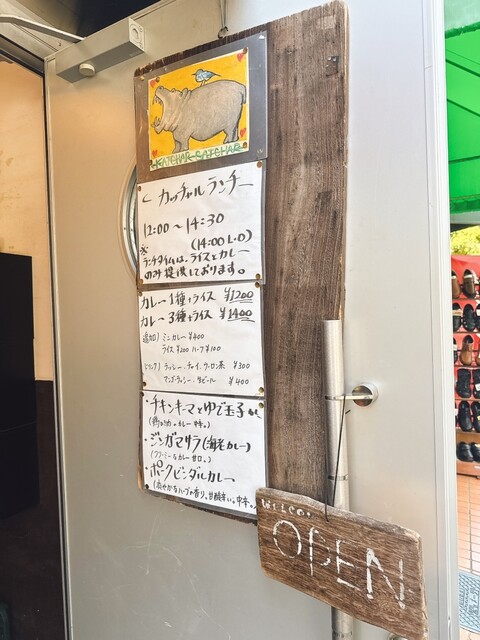 KATCHAR BATCHAR
カッチャルランチー
12:00〜14:30
(14:00 L.O)
※
ランチタイムは、ライスとカレー
のみ提供しております。
カレー1種+ライス ¥1200
カレー3種+ライス ¥1400
追加) ミニカレー ¥400
ライス ¥200 ハーフ ¥100
ドリンク) ラッシー、チャイ、ウーロン茶 ¥300
マンゴーラッシー、生ビール ¥400
・チキンキーマとゆで玉子
・ジンガマサラ(海老カレー)
(クリーミーなカレー 甘口。)
・ポークビンダルカレー
Welcome
OPEN